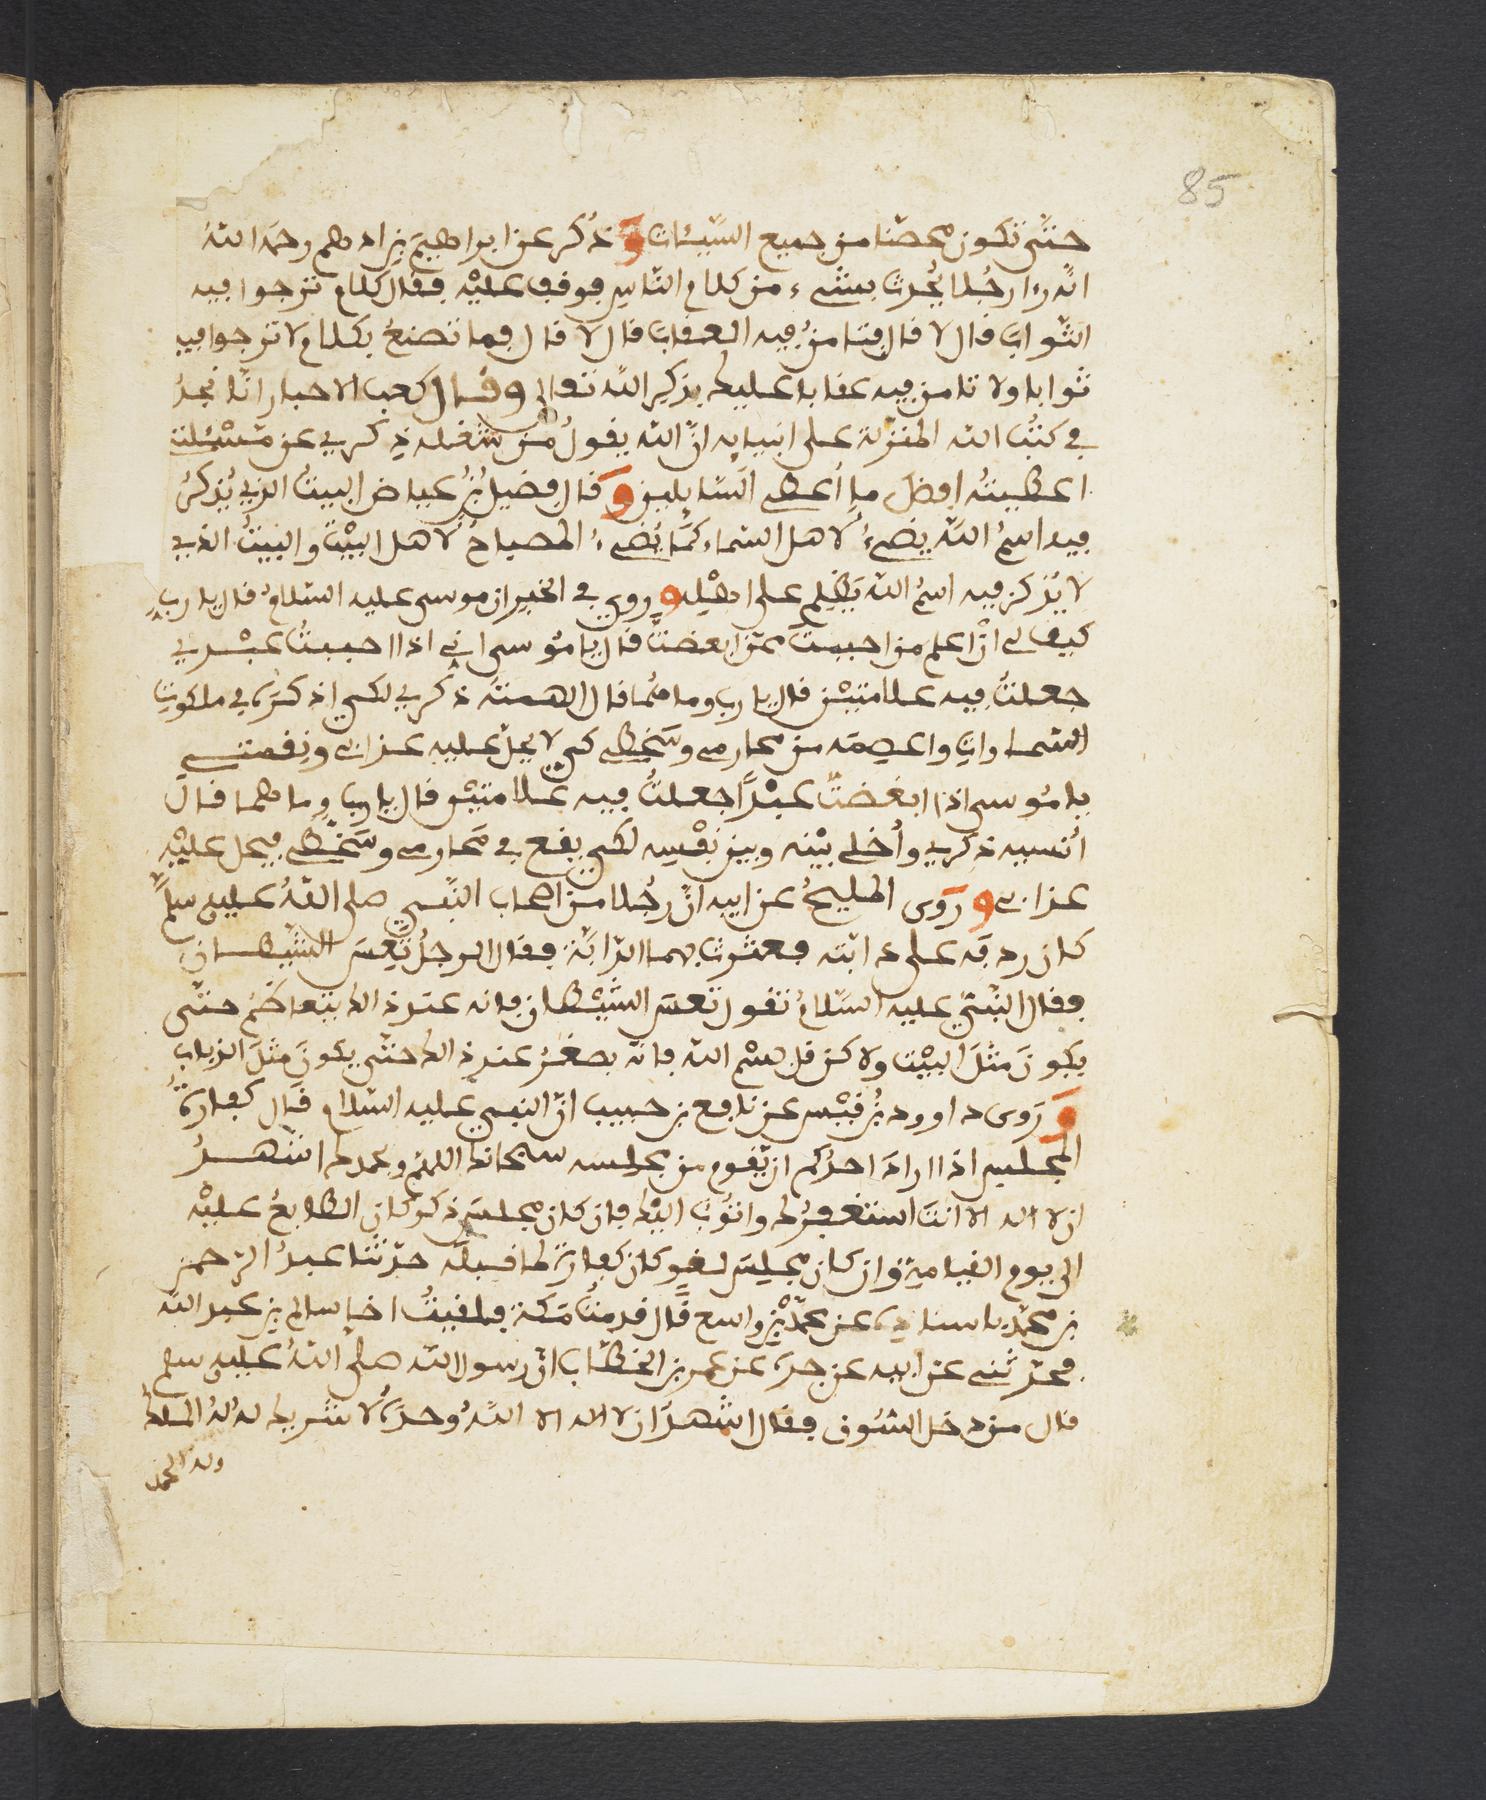 85
حتى تكون محصنا من جميع السيئات وَذُكر عن ابراهيمَ بن ادهم رحمه اللهُ
انه رءا رجُلا يُحدث بشيء من كلام الناسِ فوقف عليْه فقال كلام ترجوا فيه
الثواب قال لا قال فتامنُ فيه العقاب قال لا قال فما تصنعُ بكلام لا ترجوا فيه
ثوابا ولا تامن فيه عقابا عليك بذكرِ الله تعالى وقال كعب الاحبار انا نجدُ
في كتُب الله المنزلة على انبيايه انّ الله يقولُ من شغله ذكري عن مسْئلتي
اعطيتُه افضل ما أعطي السّايلين وَقال فضيل بنُ عياض البيتُ الذي يُذكرُ
فيه اسمُ الله يضيءُ لاهل السماء كما يُضيءُ المصباحُ لاهل البيْت والبيتُ الذي
لا يُذكر فيه اسمُ الله يَظْلم على اهْلِه ورِوي في الخبر ان موسى عليه السّلامُ قال يا ربِّ
كيف لي انْ اعلم من احببتَ ممّن ابغضتَ قال يا مُوسى اني اذا احببتُ عبْدي
جعلتُ فيه علامتيْن قال يا رب وما هُما قال الهمتهُ ذكري لكي اذكرَه في ملكوتِ
السّماواتِ واعصمه من محارمي وسَخطي كي لا يحلّ عليه عذابي ونقمتي
يا مُوسى اذا ابغضتُ عبْداً جعلتُ فيه علامتيْن قال يا رب وما هما قال
أنسيه ذكري وأُخلي بيْنه وبين نفْسِه لكي يقع في محارمي وسَخطي فيحل عليْه
عذابي وَرَوى المليحُ عن ابيه انّ رجُلا من اصحاب النّبي صلى اللهُ عليه سلم
كان ردفه على دابته فعثرت بهما الدابّة فقال الرجُلُ تَعِسَ الشّيطان
فقال النّبيّ عليه السّلامُ تقول تعسَ الشّيْطان فانه عند ذالك يتعاظمُ حتّى
يكونَ مثْلَ البيْت ولاكن قل بسْم الله فانّه يصغرُ عند ذالك حتّى يكونَ مثلَ الذباب
وَرَوى داوود بنُ قيْس عن نافع بن حبيب انّ النبي عليه السّلام قال كفارةُ
المجلس اذا ارادَ احدُكم ان يَقوم من مجلسه سبحانك اللهُمّ وبحمدك اشْهدُ
ان لا اله الا انتَ استغفرُك واتوبُ اليْك فان كان مجلسَ ذكر كان الطابعُ عليْه
الى يوم القيامةِ وان كان مجلسَ لغو كان كفارةً لما قبله حدّثنا عبدُ الرّحمن
بن محمّد باسناده عن محمّد بْن واسع قال قدمتُ مكّة فلقيتُ اخا سالم بن عبد الله
فحدّثني عن ابيه عن جدّه عن عمر بن الخطّاب انّ رسول الله صلّى اللهُ عليه سلم
قال من دخل السّوق فقال اشْهدُ ان لا اله الا اللهُ وحدَه لا شريك له لهُ الملك
وله الحمد